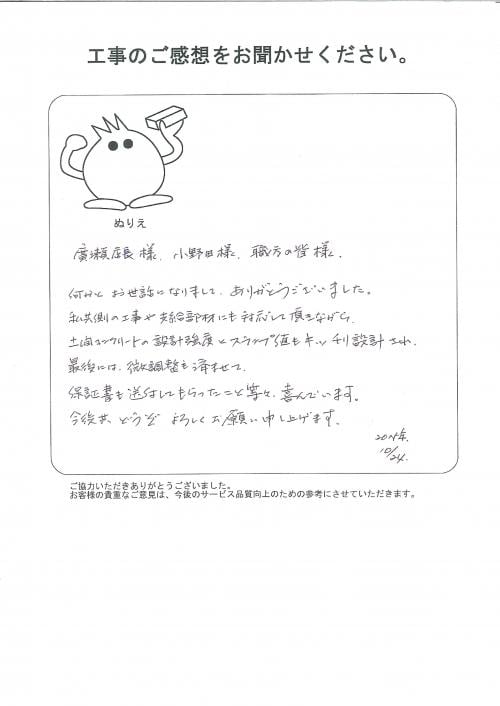 工事のご感想をお聞かせください。
ぬりえ
廣瀬店長様、小野田様、職方の皆様、
何かと お世話になりまして、ありがとうございました。
私共側の工事や支給部材にも対応して頂きながら、
土間コンクリートの設計強度とスランプ値もキッチリ設計され、
最後には、微調整も済ませて、
保証書も送付してもらったこと等々、喜んでいます。
今後共、どうぞ よろしくお願い申し上げます。
10/24.
ご協力いただきありがとうございました。
お客様の貴重なご意見は、今後のサービス品質向上のための参考にさせていただきます。